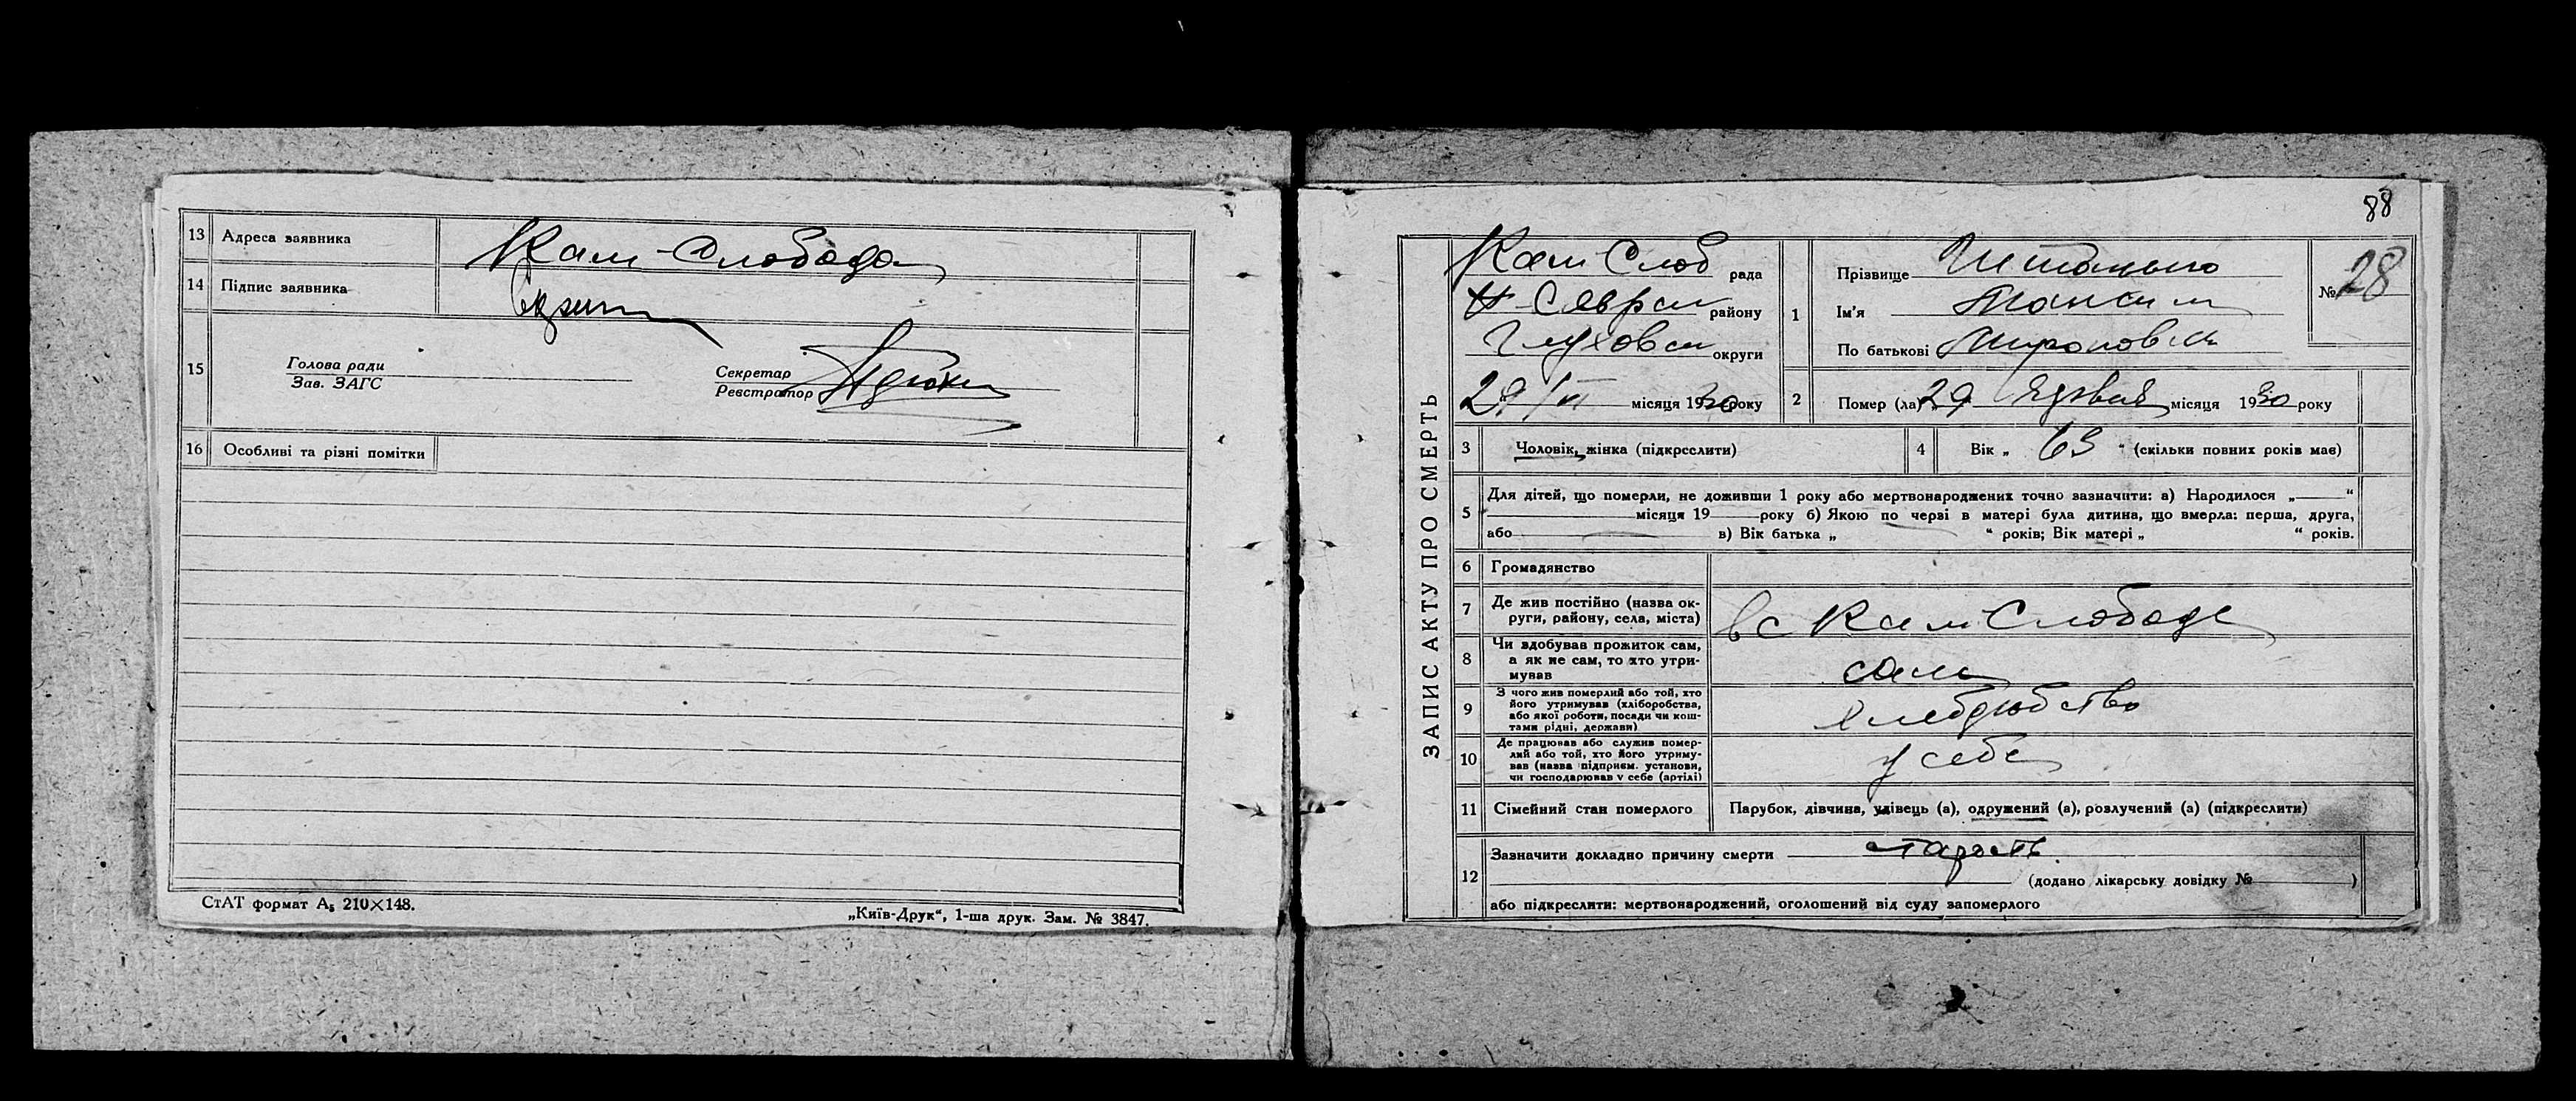 13 Адреса заявника Кам-Слобода
14 Підпис заявника
15 Голова ради
Зав. ЗАГС
Секретар
Реєстратор
16 Особливі та різні помітки
СтАТ формат А5 210×148.
„Київ-Друк“, 1-ша друк. Зам. № 3847.
88
ЗАПИС АКТУ ПРО СМЕРТЬ
Кам Слоб рада
району
Глуховск округи
29/VI місяця 1930 року
1 Прізвище
Ім'я
По батькові
№ 28
2 Помер (ла) „29 місяця 1930 року
3 Чоловік, жінка (підкреслити)
4 Вік „ 63 “ (скільки повних років має)
5 Для дітей, що померли, не доживши 1 року або мертвонароджених точно зазначити: а) Народилося „ “
місяця 19 року б) Якою по черзі в матері була дитина, що вмерла: перша, друга,
або в) Вік батька „ “ років; Вік матері „ “ років.
6 Громадянство
7 Де жив постійно (назва ок-
руги, району, села, міста) в с Кам Слободе
8 Чи здобував прожиток сам,
а як не сам, то хто утри-
мував сам
9 З чого жив померлий або той, хто
його утримував (хліборобства,
або якої роботи, посади чи кош-
тами рідні, держави)
10 Де працював або служив помер-
лий або той, хто його утриму-
вав (назва підприєм. установи,
чи господарював у себе (артілі) у себе
11 Сімейний стан померлого Парубок, дівчина, удівець (а), одружений (а), розлучений (а) (підкреслити)
12 Зазначити докладно причину смерти старость
(додано лікарську довідку № )
або підкреслити: мертвонароджений, оголошений від суду запомерлого